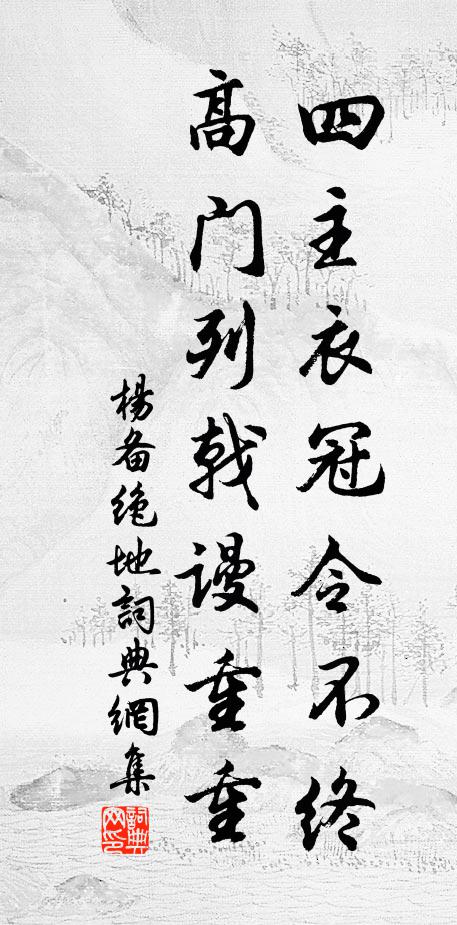 四主衣冠令不终
高门列戟谩重重
楊备绝地詞典網集
詞典网印